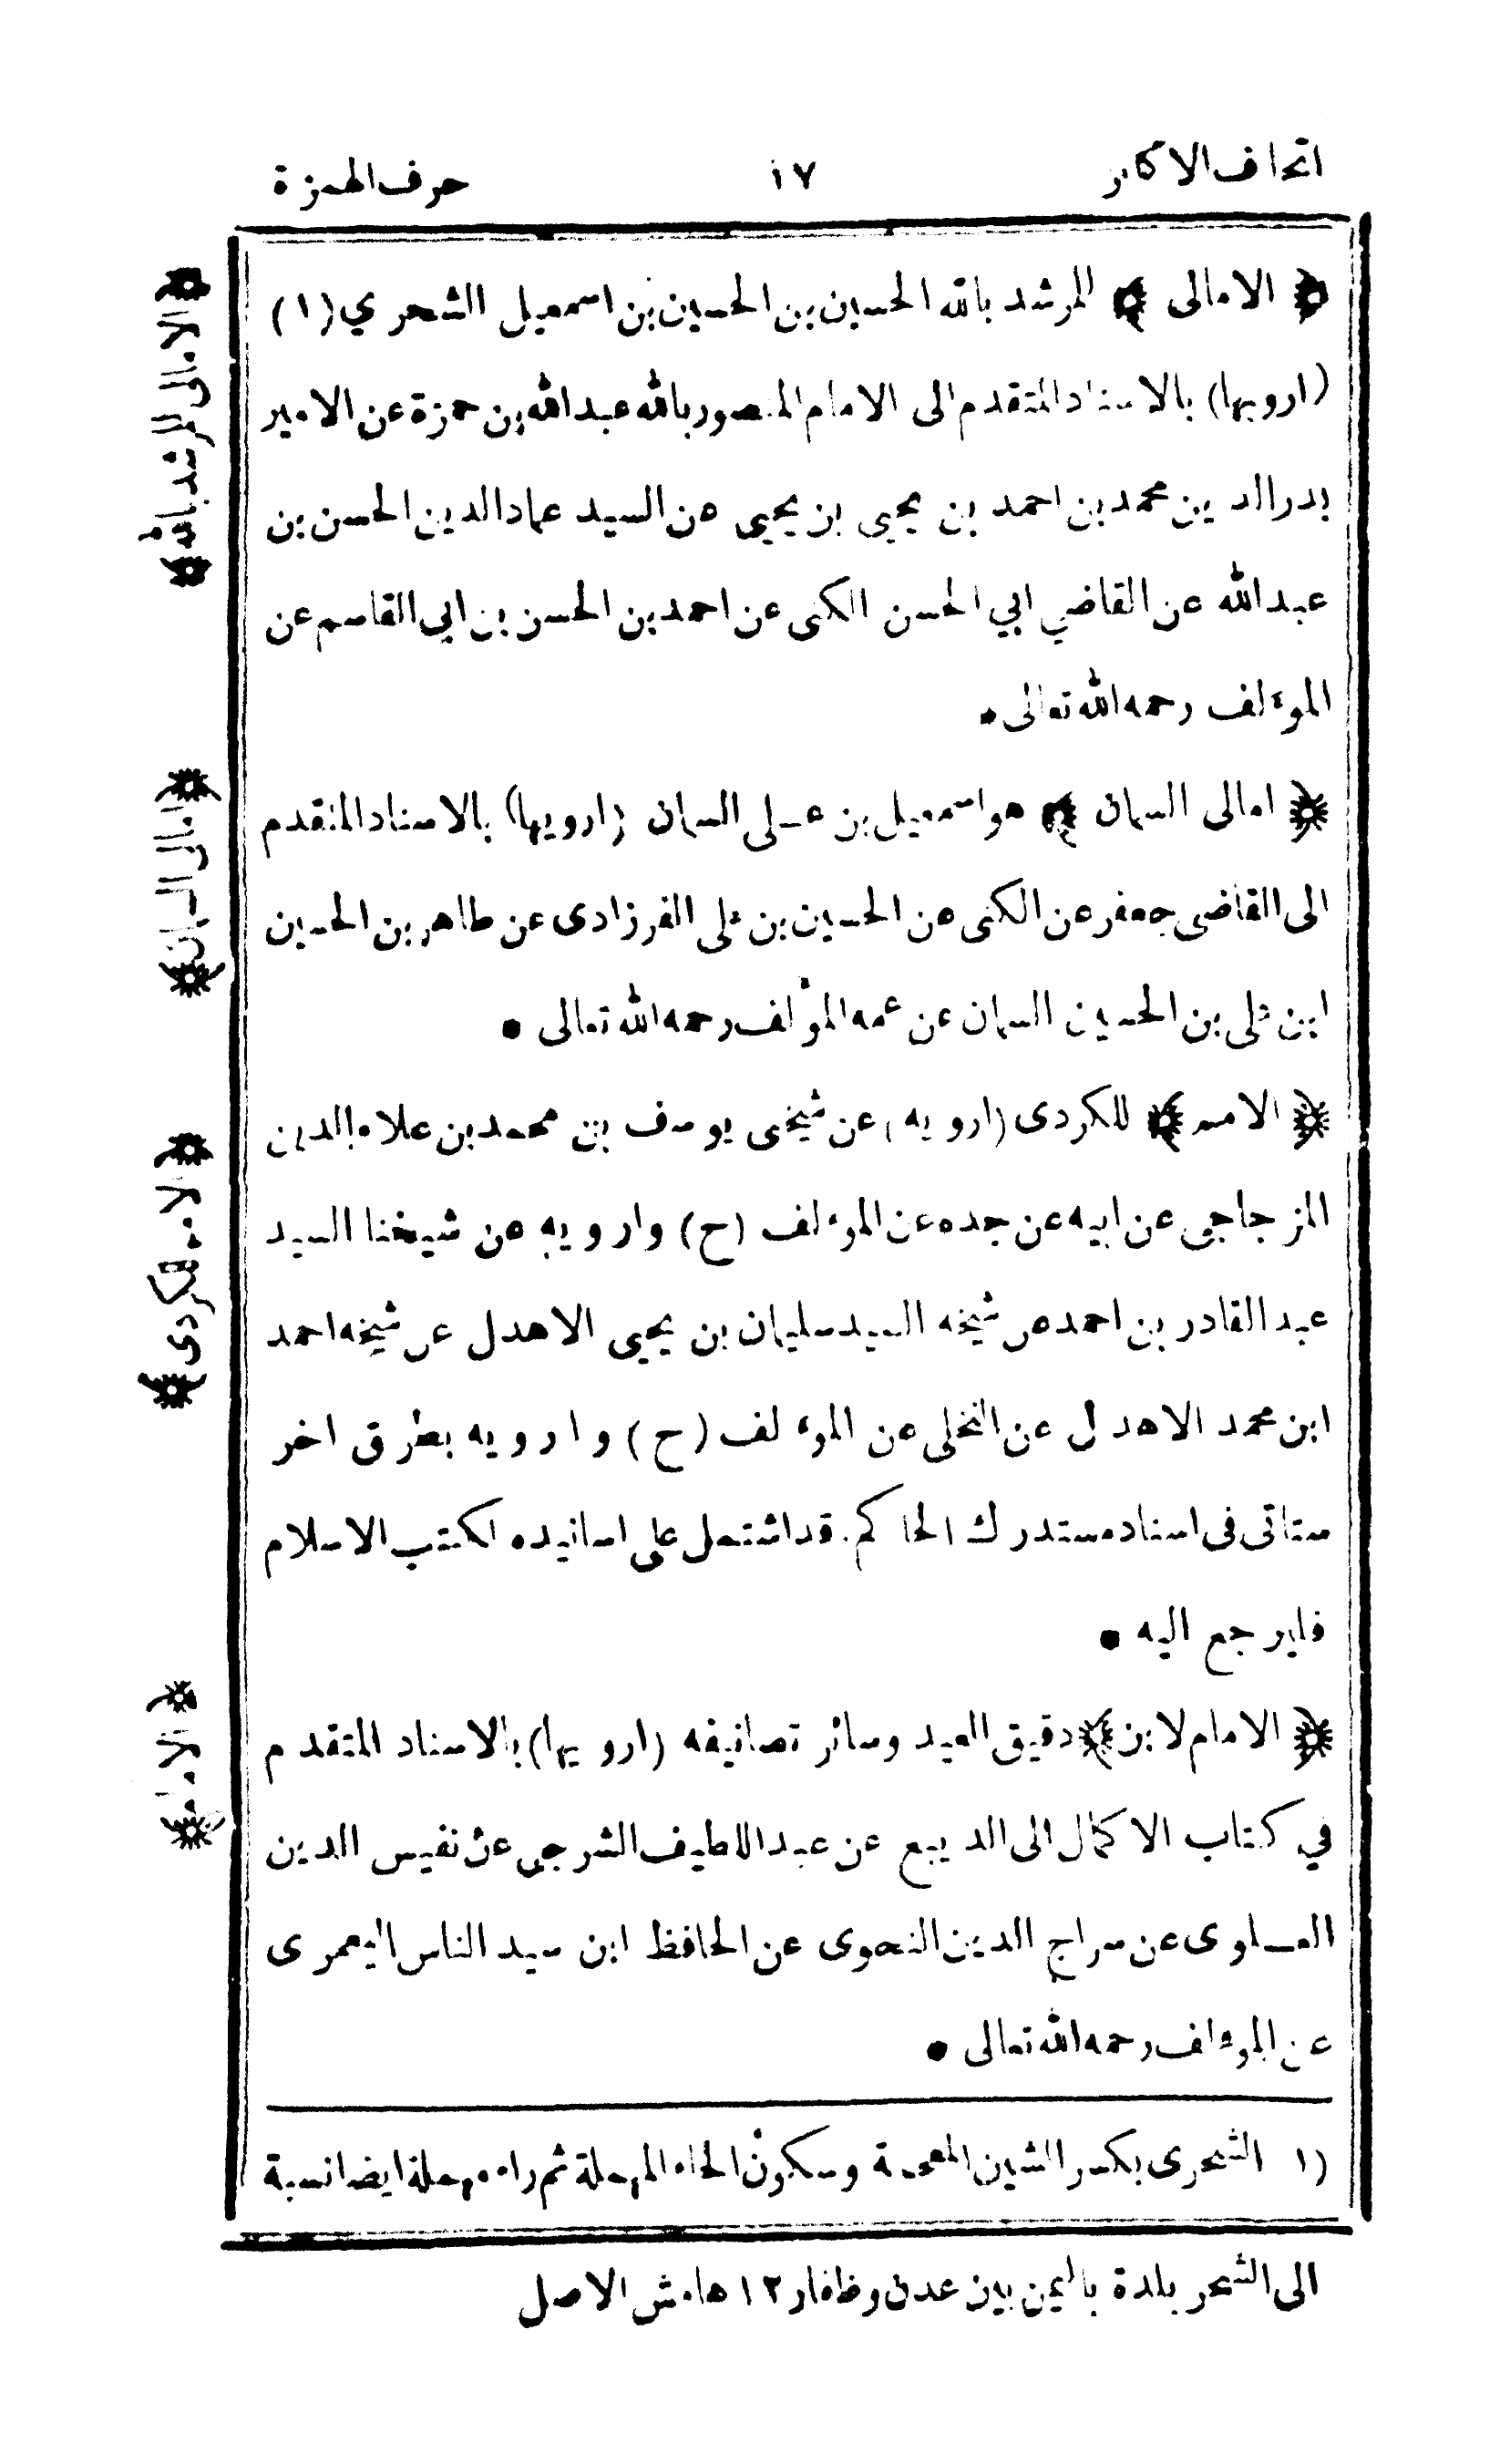 اتحاف الاكابر
١٧
حرف الهمزة
﴿ الامالى ﴾ للمرشد بالله الحسين بن الحسين بن اسمعيل الشحري (١)
(ارويها) بالاسناد المتقدم الى الامام المنصور بالله عبدالله بن حمزة عن الامير
بدرالدين محمد بن احمد بن يحيى بن يحيى عن السيد عمادالدين الحسن بن
عبدالله عن القاضي ابي الحسن الكنى عن احمد بن الحسن بن ابي القاسم عن
المؤلف رحمه الله تعالى •
﴿ امالى السمان ﴾ هو اسمعيل بن عــلى السمان (ارويها) بالاسناد المتقدم
الى القاضى جعفر عن الكنى عن الحسين بن على الفرزادى عن طاهر بن الحسين
ابن على بن الحسين السمان عن عمه المؤلف رحمه الله تعالى •
﴿ الامم ﴾ للكردى (ارويه) عن شيخى يوسف بن محمد بن علاء الدين
المزجاجى عن ابيه عن جده عن المؤلف (ح) وارويه عن شيخنا السيد
عبد القادر بن احمد عن شيخه السيد سليمان بن يحيى الاهدل عن شيخه احمد
ابن محمد الاهدل عن النخلى عن المؤلف (ح) وارويه بطرق اخر
ستاتى فى اسناد مستدرك الحاكم. قد اشتمل على اسانيده لكتب الاسلام
فليرجع اليه •
﴿ الامام لابن ﴾ دقيق العيد وسائر تصانيفه (ارويها) بالاسناد المتقدم
في كتاب الاكمال الى الديبع عن عبد اللطيف الشرجى عن نفيس الدين
العــلوى عن سراج الدين النحوى عن الحافظ ابن سيد الناس اليعمرى
عن المؤلف رحمه الله تعالى •
(١ الشحرى بكسر الشين المعجمة وسكون الحاء المهملة ثم راء مهملة ايضا نسبة
الى الشحر بلدة باليمن بين عدن وظفار ١٢ هامش الاصل
﴿الامالى للمرشد بالله﴾
﴿امالى السمان﴾
﴿الامم للكردى﴾
﴿الامام﴾